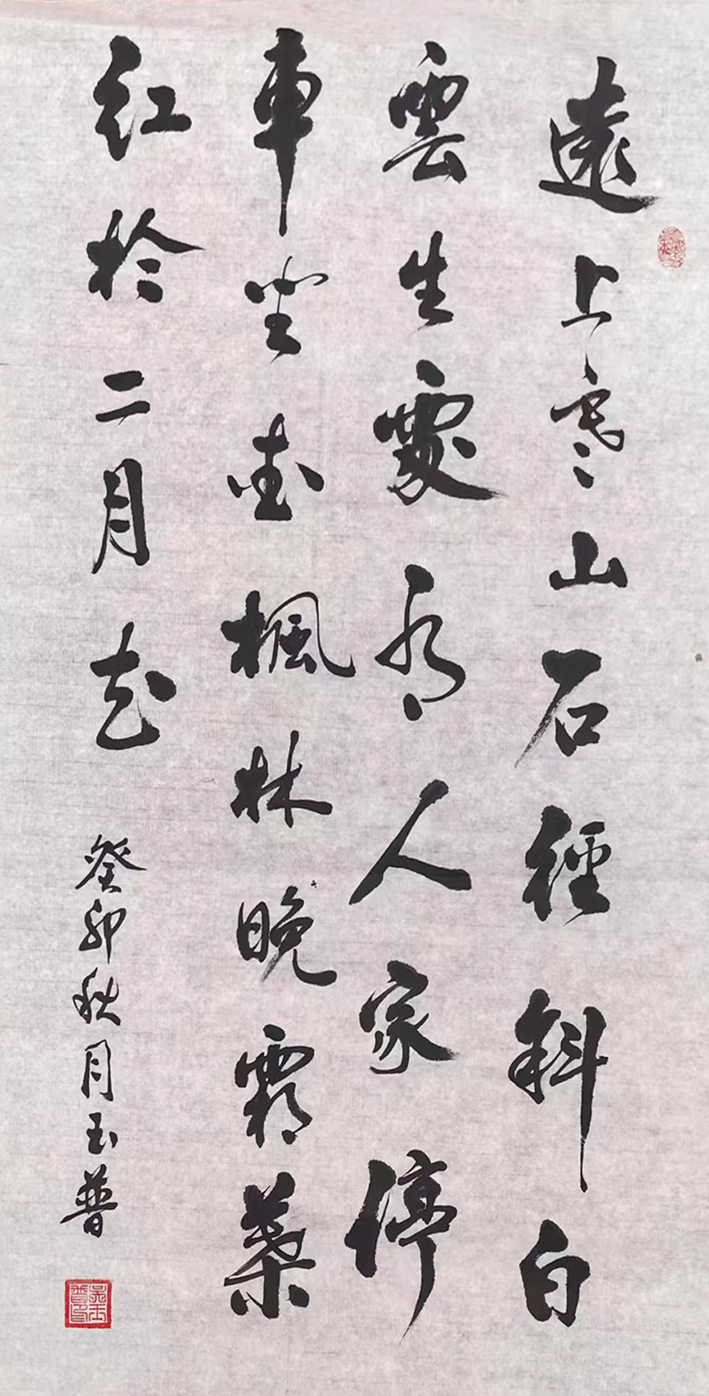 遠上寒山石徑斜白
雲生處有人家停
車坐愛楓林晚霜葉
紅於二月花
癸卯秋月玉普